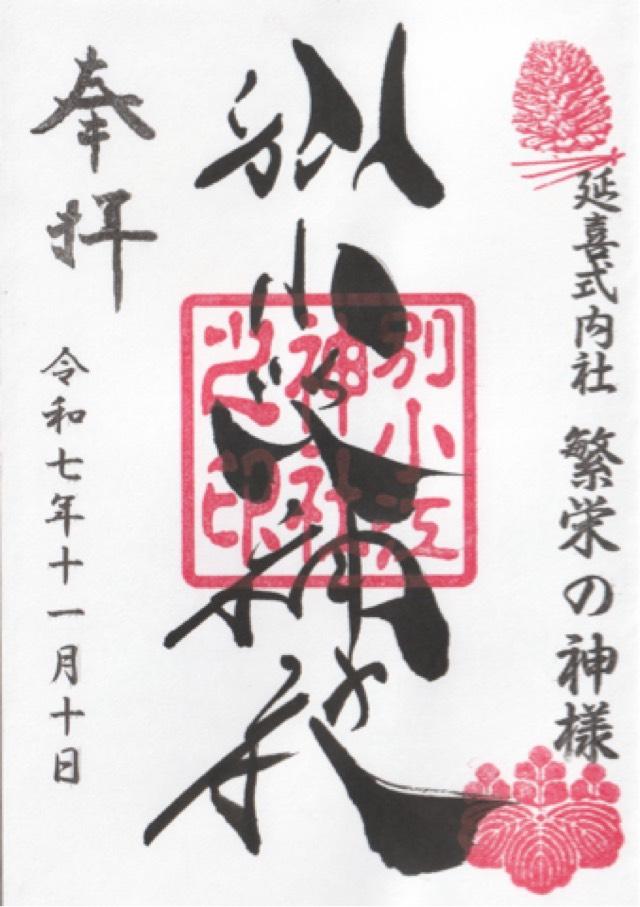 延喜式内社 繁栄の神様
別小江神社
別小江
神社
之印
奉拝
令和七年十一月十日